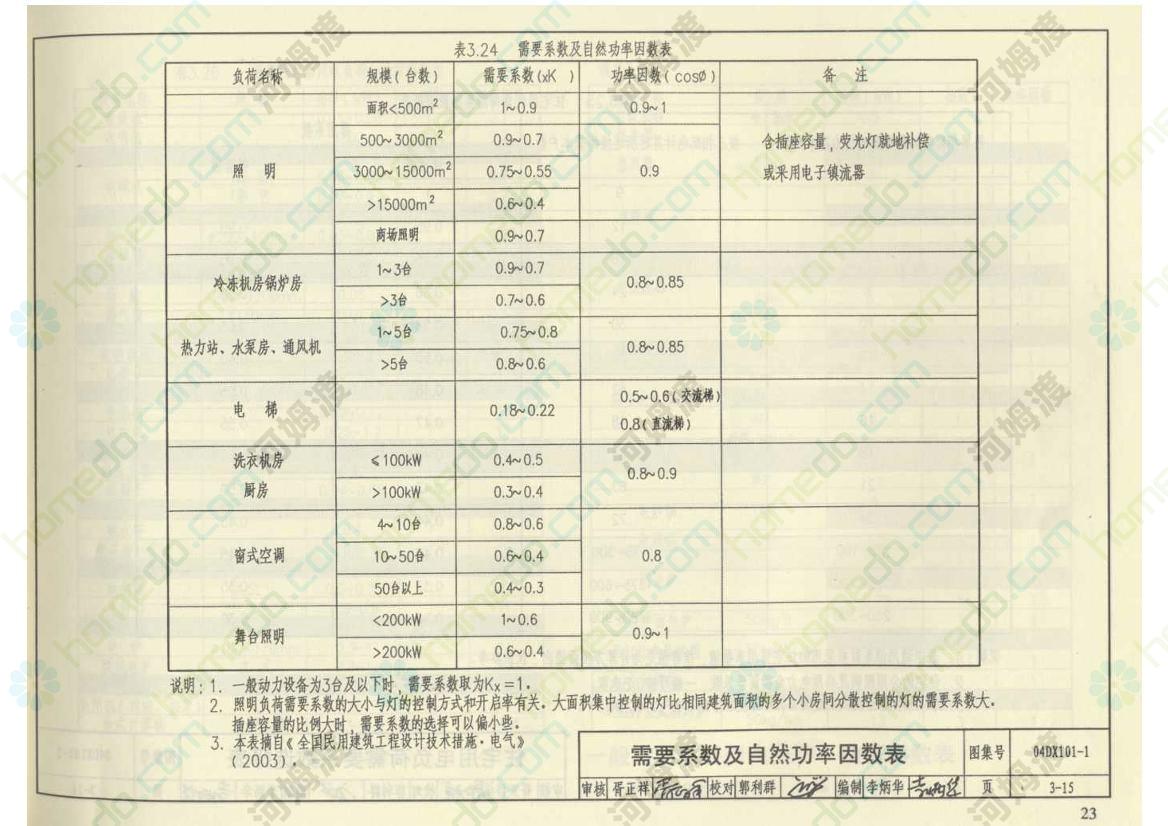 表3.24 需要系数及自然功率因数表
负荷名称 规模(台数) 需要系数(xK ) 功率因数(cosØ) 备 注
面积<500m² 1~0.9 0.9~1
500~3000m² 0.9~0.7 含插座容量,荧光灯就地补偿
照 明 3000~15000m² 0.75~0.55 0.9 或采用电子镇流器
>15000m² 0.6~0.4
商场照明 0.9~0.7
冷冻机房锅炉房 1~3台 0.9~0.7 0.8~0.85
>3台 0.7~0.6
热力站、水泵房、通风机 1~5台 0.75~0.8 0.8~0.85
>5台 0.8~0.6
电 梯 0.18~0.22 0.5~0.6(交流梯)
0.8(直流梯)
洗衣机房 ≤100kW 0.4~0.5 0.8~0.9
厨房 >100kW 0.3~0.4
4~10台 0.8~0.6
窗式空调 10~50台 0.6~0.4 0.8
50台以上 0.4~0.3
舞台照明 <200kW 1~0.6 0.9~1
>200kW 0.6~0.4
说明:1. 一般动力设备为3台及以下时,需要系数取为Kx=1。
2. 照明负荷需要系数的大小与灯的控制方式和开启率有关。大面积集中控制的灯比相同建筑面积的多个小房间分散控制的灯的需要系数大。
插座容量的比例大时,需要系数的选择可以偏小些。
3. 本表摘自《全国民用建筑工程设计技术措施·电气》
(2003)。
需要系数及自然功率因数表 图集号 04DX101-1
审核 胥正祥 校对 郭利群 编制 李炳华 页 3-15
23
homedo.com 河姆渡